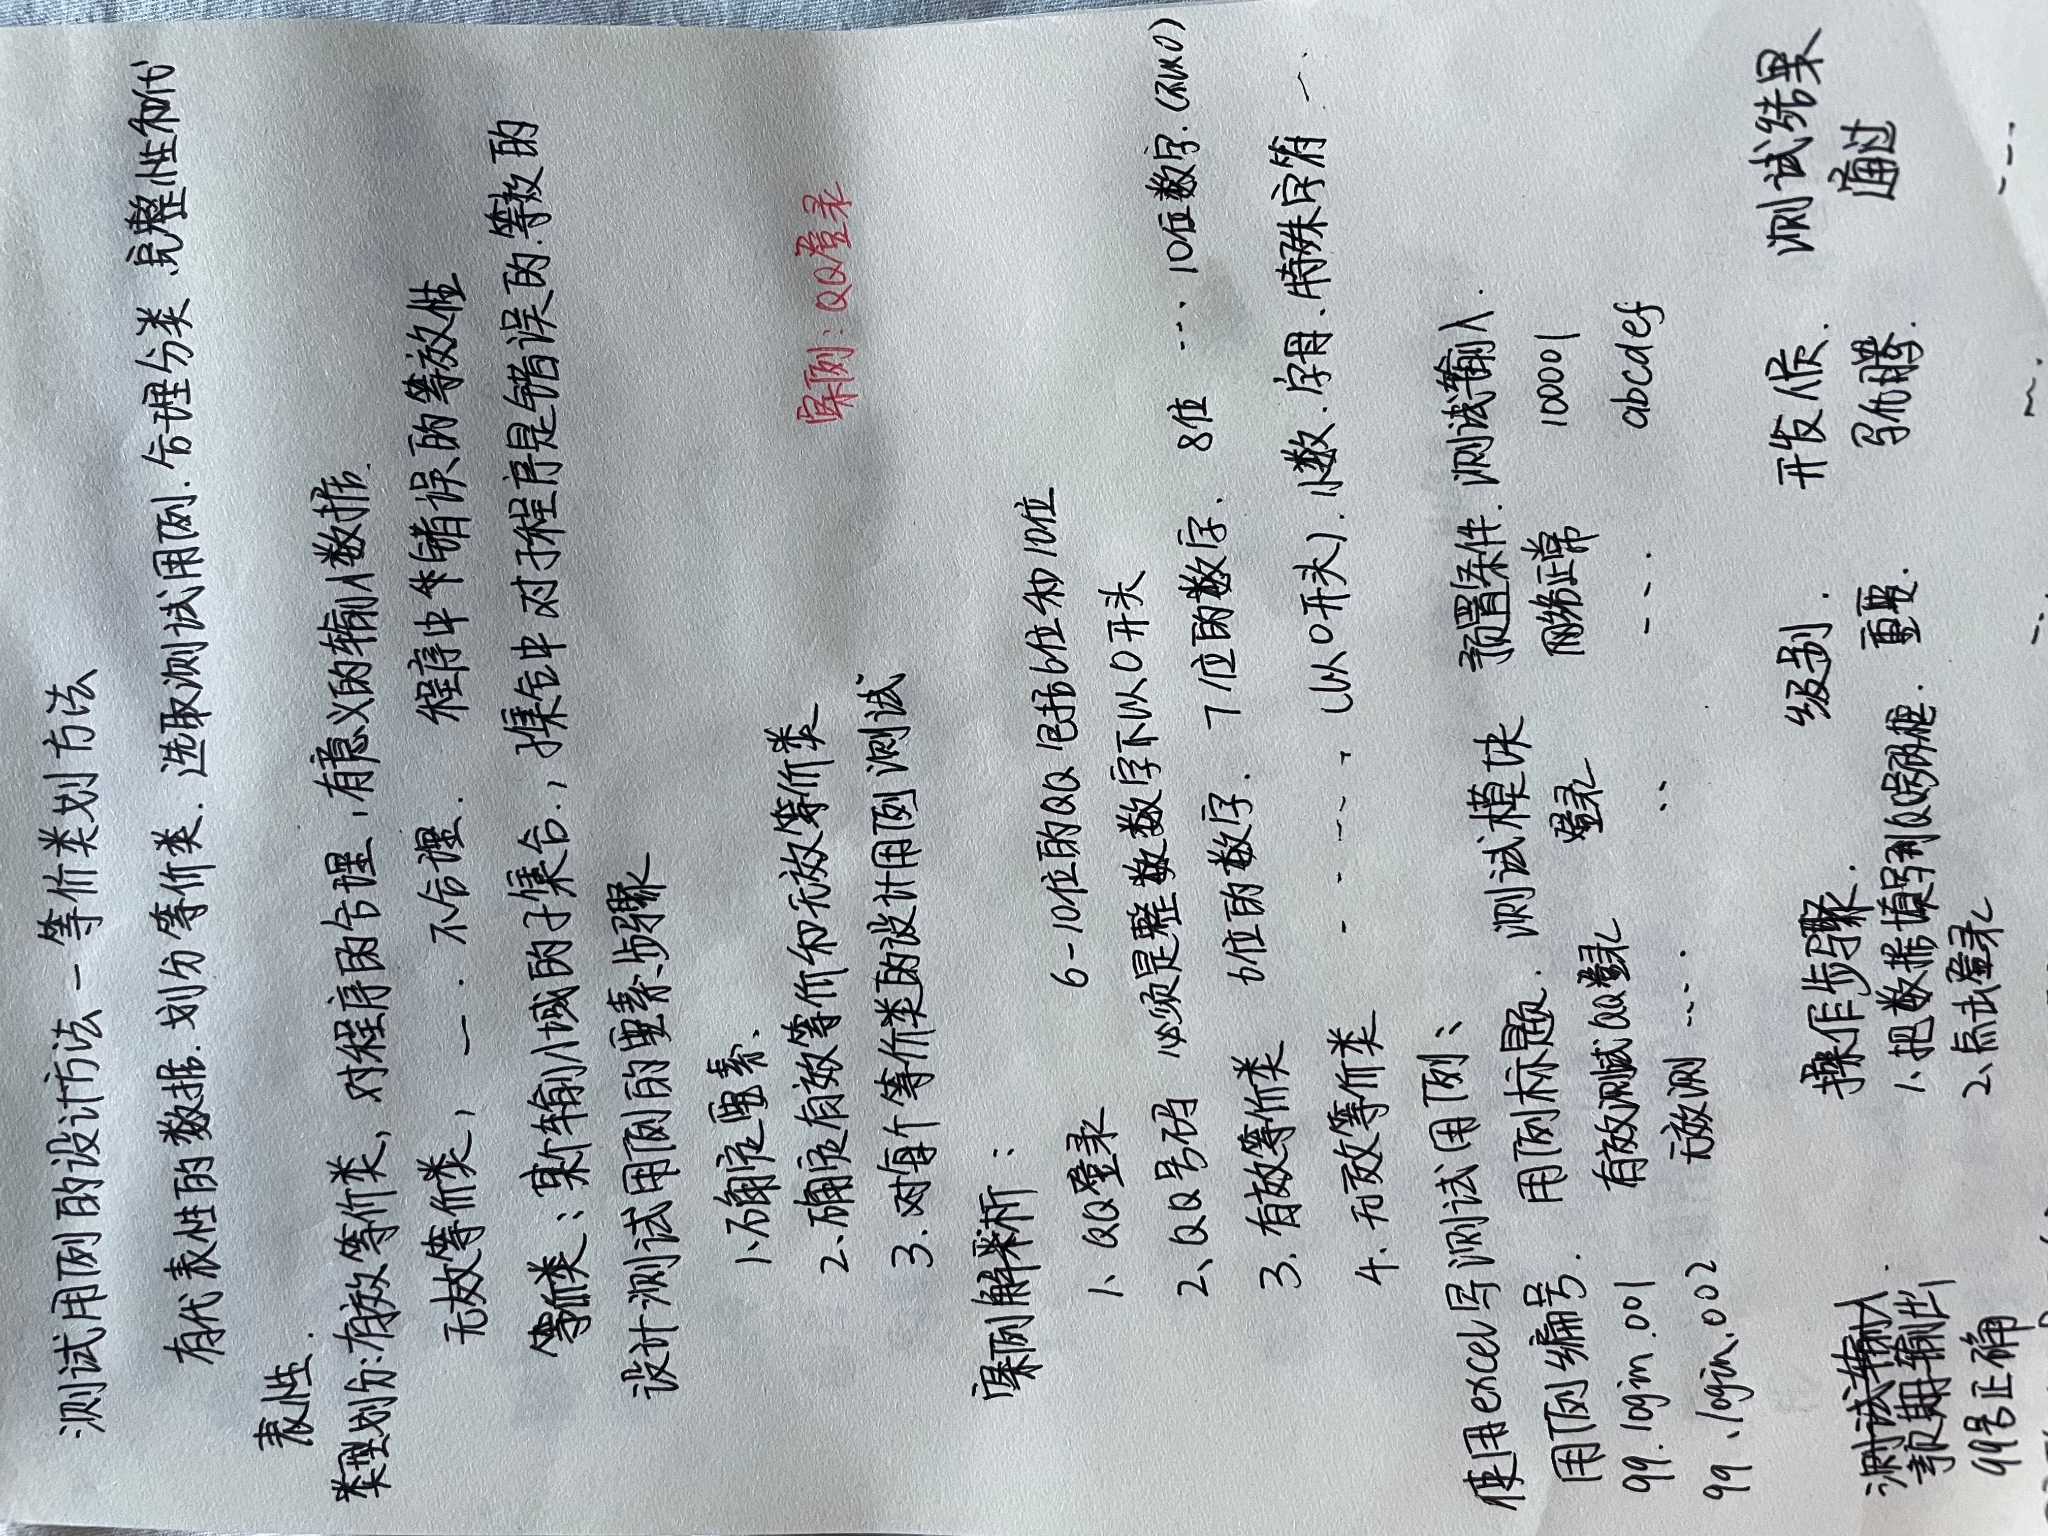 测试用例的设计方法-等价类划方法
有代表性的数据.划分等价类.选取测试用例.合理分类.完整性和代
表性.
类型划分:有效等价类,对程序的合理,有意义的输入数据.
无效等价类,一.不合理.程序中错误的等效性
等价类:某个输入域的子集合.,集合中对于程序是错误的.等效的
设计测试用例的要素、步骤
案例:QQ登录
1、确定要素、
2、确定有效等价和无效等价类
3.对每个等价类的设计用例测试
案例解析:
1、QQ登录 6-10位的QQ包括6位和10位
2、QQ号码 必须是整数数字不以0开头
3.有效等价类 6位的数字. 7位的数字. 8位 .... 10位数字.
4.无效等价类 - ----, (以0开头).小数.字母.特殊字符一
使用excel写测试用例:
用例编号. 用例标题. 测试模块 预置条件. 测试输入.
99.login.001 有效测试QQ登录 登录 网络正常 10001
99.login.002 无效测.... .. ---. abcdef
操作步骤. 级别. 开发人员. 测试结果
预期输出 1、把数据填写到QQ号码框. 重要. 马化腾. 通过
99号正确 2、点击登录 ---